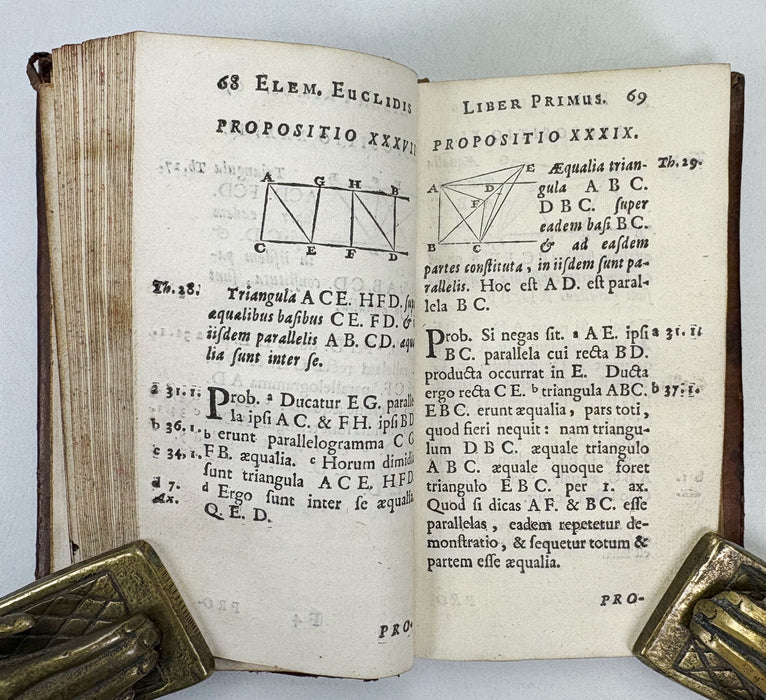 68 ELEM. EUCLIDIS
PROPOSITIO XXXVII
A G H B
C E F D
Th. 28. Triangula A C E. H F D. sup
æqualibus basibus C E. F D. &
iisdem parallelis A B. C D. æqu
lia sunt inter se.
a 31. 1. Prob. a Ducatur E G. paralle
la ipsi A C. & F H. ipsi B D
b 36. 1. b erunt parallelogramma C G
c 34. 1. F B. æqualia. c Horum dimidia
sunt triangula A C E. H F D.
d 7. d Ergo sunt inter se æqualia
Ax. Q. E. D.
PRO-
LIBER PRIMUS. 69
PROPOSITIO XXXIX.
E
A D
F
B C
Æqualia trian- Th. 29.
gula A B C.
D B C. super
eadem basi B C.
& ad easdem
partes constituta, in iisdem sunt pa-
rallelis. Hoc est A D. est paral-
lela B C.
Prob. Si negas sit. a A E. ipsi a 31. 1.
B C. parallela cui recta B D.
producta occurrat in E. Ducta
ergo recta C E. b triangula ABC. b 37. 1.
E B C. erunt æqualia, pars toti,
quod fieri nequit: nam triangu-
lum D B C. æquale triangulo
A B C. æquale quoque foret
triangulo E B C. per 1. ax.
Quod si dicas A F. & B C. esse
parallelas, eadem repetetur de-
monstratio, & sequetur totum &
partem esse æqualia.
PRO-